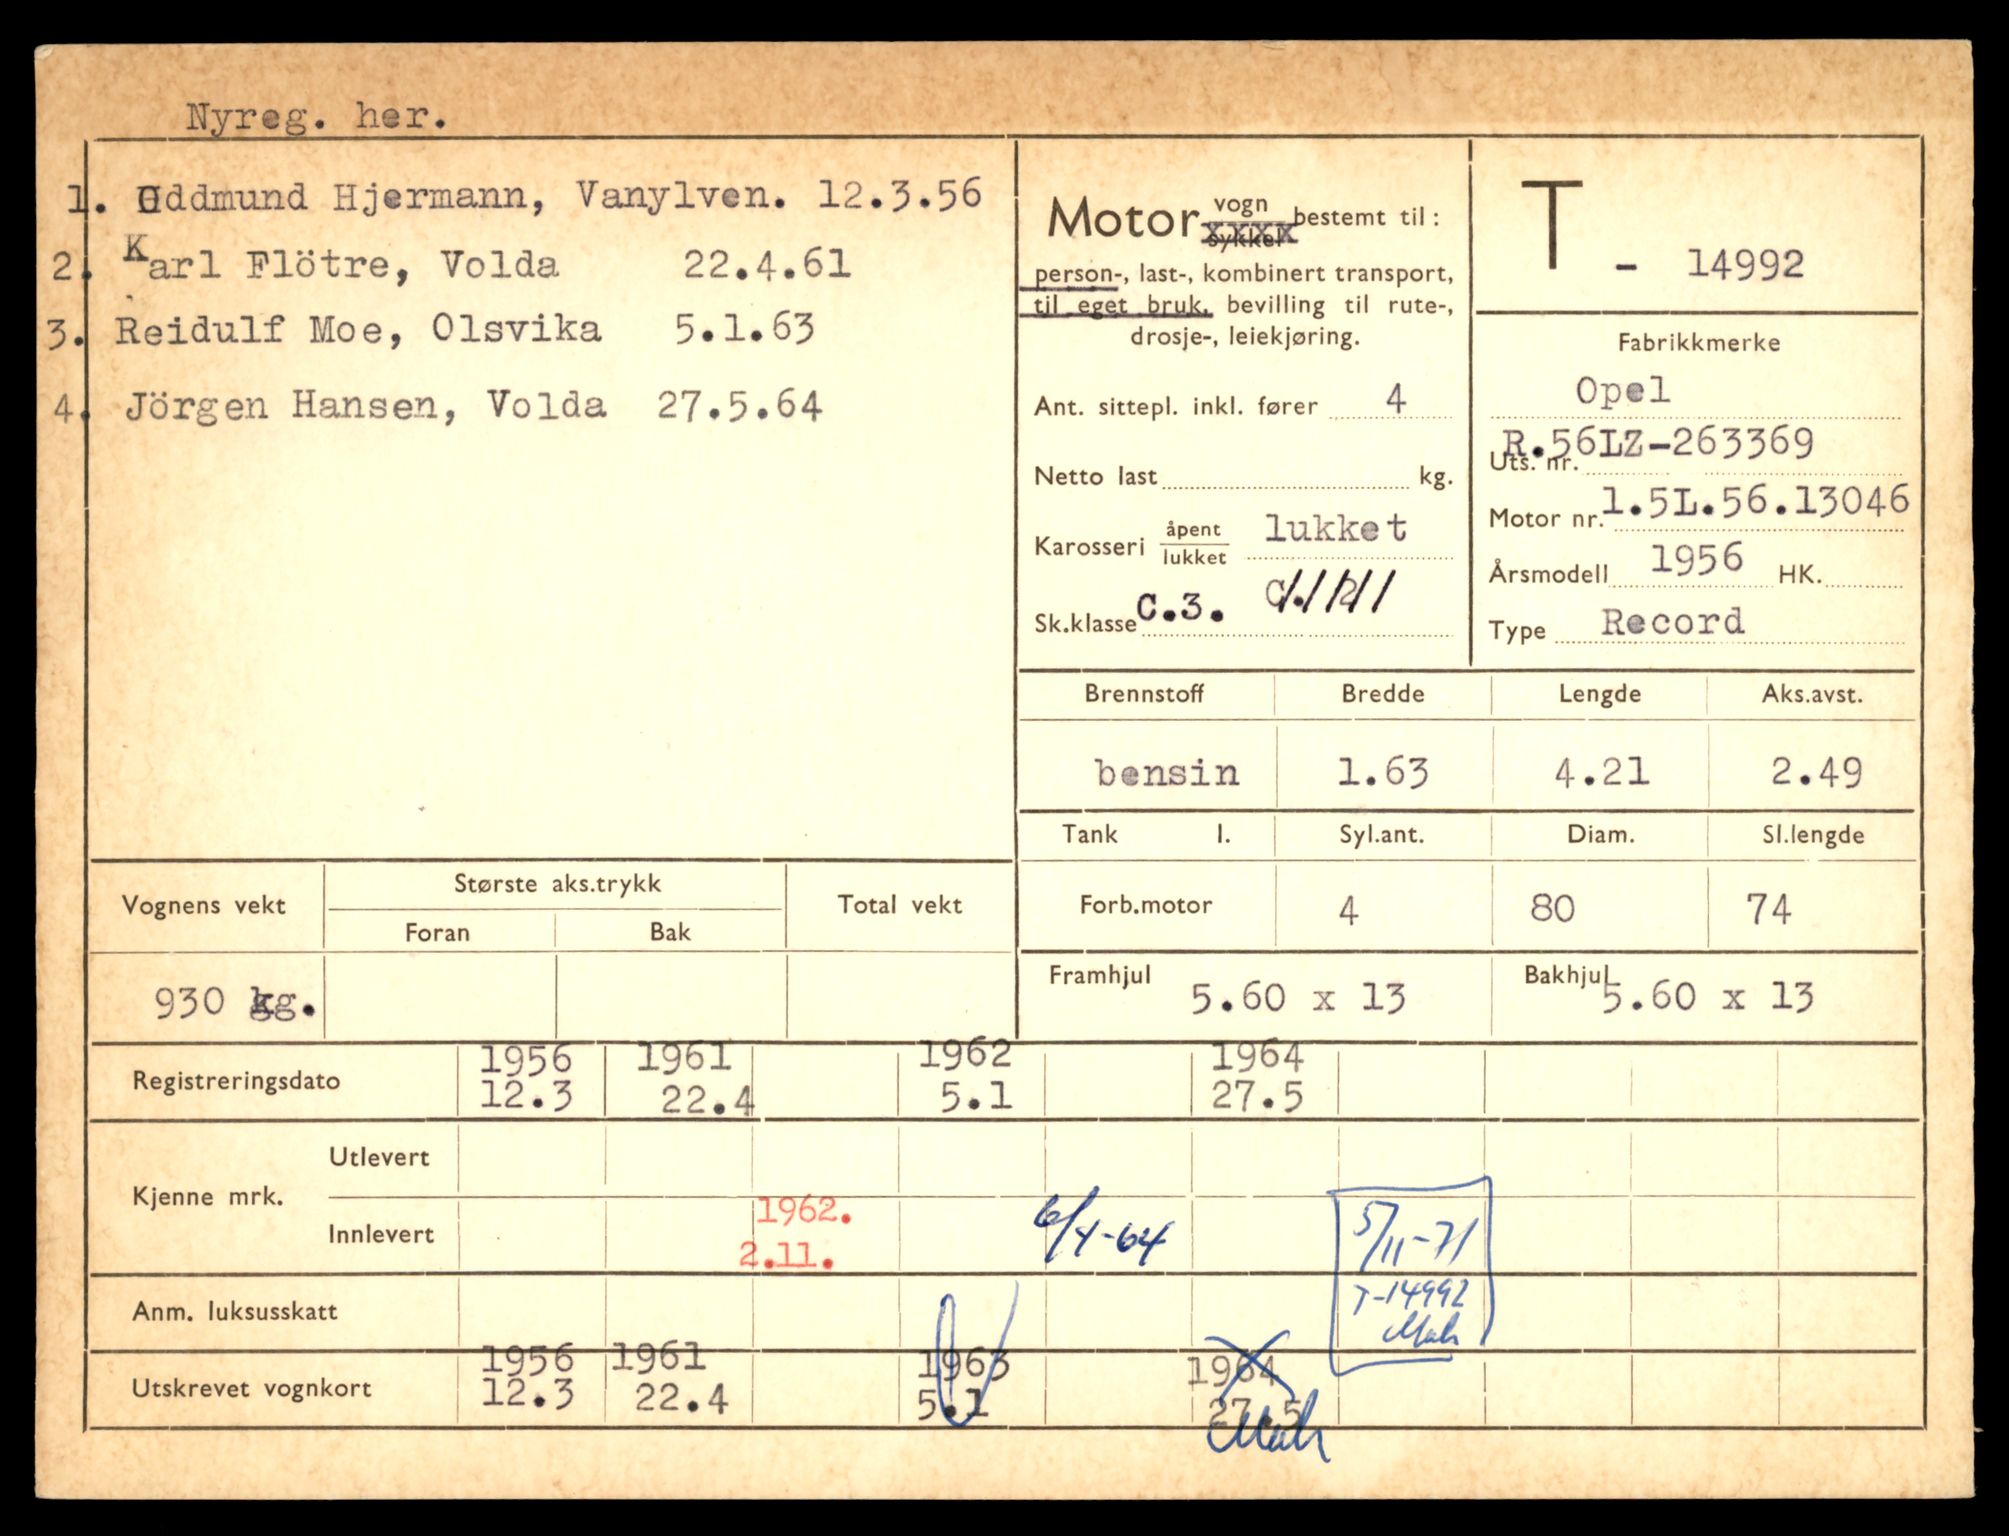 Nyreg. her.
1. Oddmund Hjermann, Vanylven. 12.3.56
2. Karl Flötre, Volda 22.4.61
3. Reidulf Moe, Olsvika 5.1.63
4. Jörgen Hansen, Volda 27.5.64
Motor vogn sykkel bestemt til:
person-, last-, kombinert transport,
til eget bruk, bevilling til rute-,
drosje-, leiekjøring.
Ant. sittepl. inkl. fører 4
Netto last kg.
Karosseri åpent lukket lukket
Sk.klasse C.3.
T - 14992
Fabrikkmerke
Opel
Uts. nr. R.56LZ-263369
Motor nr. 1.5L.56.13046
Årsmodell 1956 HK.
Type Record
Brennstoff Bredde Lengde Aks.avst.
bensin 1.63 4.21 2.49
Tank l. Syl.ant. Diam. Sl.lengde
Forb.motor 4 80 74
Framhjul 5.60 x 13 Bakhjul 5.60 x 13
Vognens vekt Største aks.trykk Total vekt
Foran Bak
930 kg.
1956 1961 1962 1964
Registreringsdato
12.3 22.4 5.1 27.5
Kjenne mrk. Utlevert
Innlevert
1962. 6/4-64 5/11-71
2.11.
T-14992
Anm. luksusskatt
1956 1961 1963 1964
Utskrevet vognkort
12.3 22.4 5.1 27.5